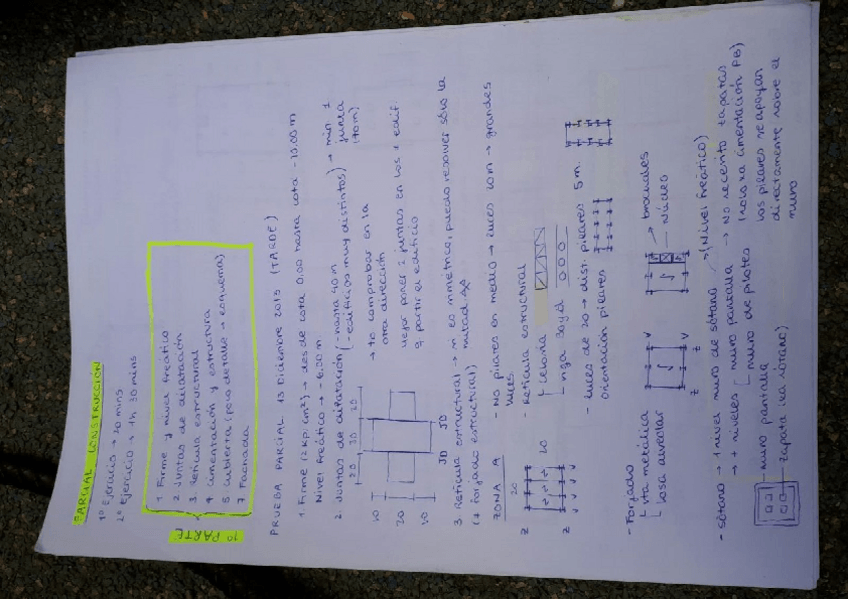 PARCIAL CONSTRUCCIÓN
1º Ejercicio → 30 mins
2º Ejercicio → 1h 30 mins
1º PARTE
1 Firme y nivel freático
2 Juntas de dilatación
3 Retícula estructural
4 Cimentación y estructura
5 Cubierta (poco detalle → esquema)
7 Fachada
PRUEBA PARCIAL 13 Diciembre 2013 (TARDE)
1. Firme (2 Kp/cm²) → desde cota 0.00 hasta cota -10.00 m
Nivel Freático →
2. Juntas de dilatación (- hasta 40 m
(- edificios muy distintos) → min 1
junta
(40m)
→ Yo comprobar en la
otra dirección
Mejor poner 2 juntas en los 2 edif.
q partir el edificio
20
JD
JD
3 Retícula estructural → si es simétrico, puedo resolver sólo la
mitad
(2 Forjado estructural)
ZONA A
- No pilares en medio → luces 20m → grandes
luces
- Retícula estructural
celosía
viga Boyd
- Luces de 20 → dist. pilares 5 m.
orientación pilares
20
20
Z
Z
V V V V
- Forjado
chapa metálica
losa alveolar
V
V
Z
Z
→ brochales
→ Núcleo
- Sótano → 1 nivel muro de sótano → (Nivel freático)
→ + niveles
muro pantalla
muro de pilotes
→ No necesito zapatas
(solo la cimentación PB)
los pilares se apoyan
directamente sobre el
muro
muro pantalla
zapata (sótano)